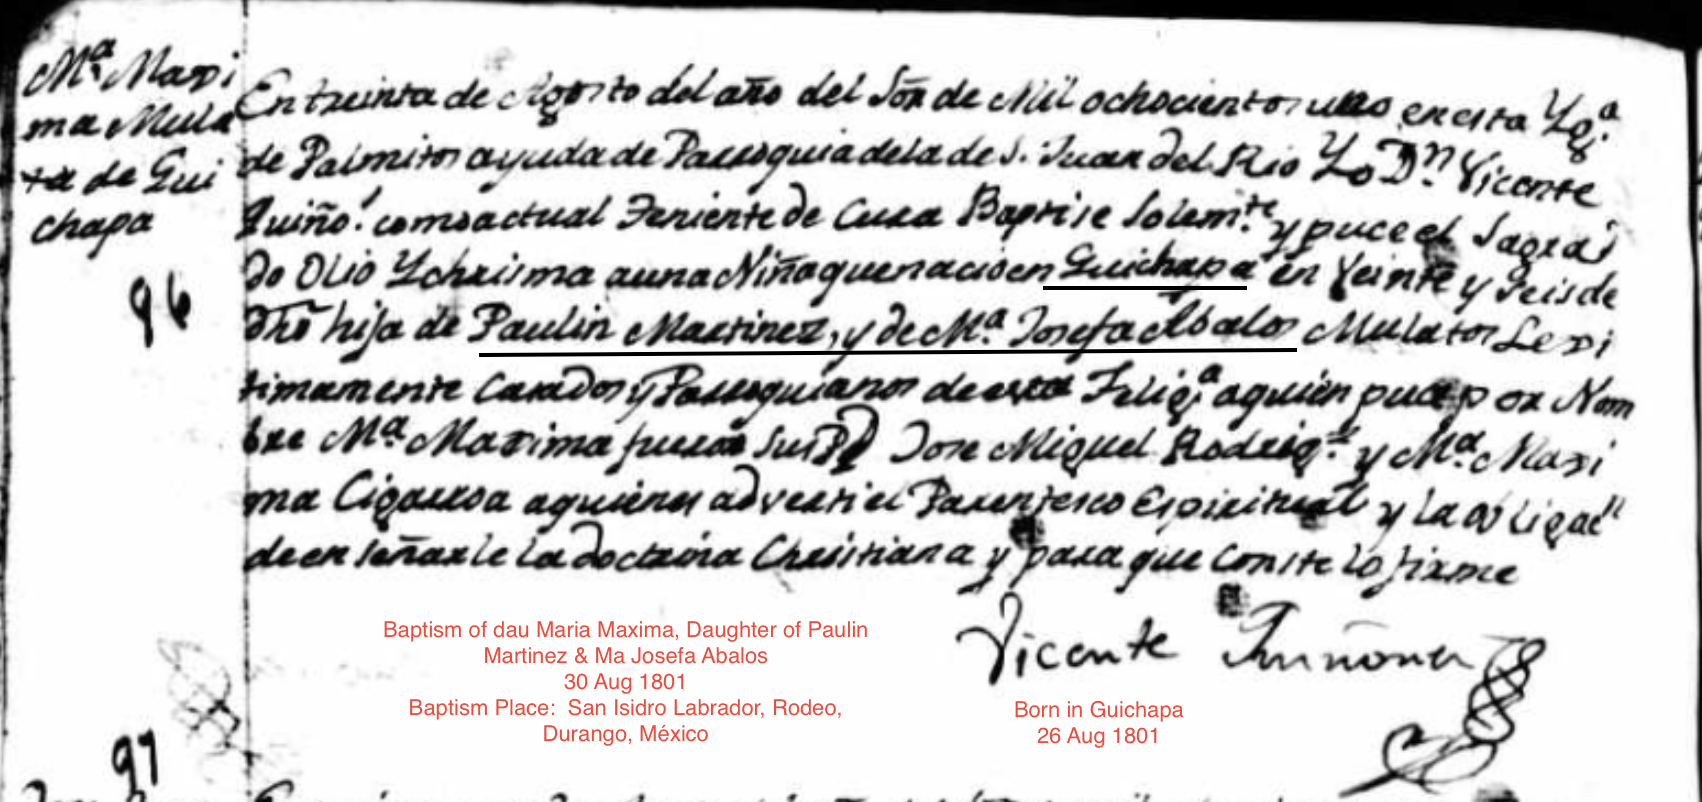 Mª Maxi
ma Mula
ta de Gui
chapa
96
En treinta de Agosto del año del Sōr de Mil ochocientos uno en esta Ygª
de Palmitos ayuda de Parroquia de la de S. Juan del Rio Yo Dn. Vicente
Quiño.s como actual Teniente de Cura Baptise Solemte. y puce el Sagra
do Olio Y chrisma a una Niña que nacio en Guichapa en Veinte y Seis de
dho hija de Paulin Martinez, y de Mª Josefa Abalos Mulatos Lexi
timamente Casados y Parroquianos de esta Feligª a quien puce por Nom
bre Mª Maxima fueron sus PP Jose Miguel Rodrigz y Mª Maxi
ma Cigarroa a quienes adverti el Parentesco Espiritual y la obligacn
de enseñarle la doctrina Christiana y para que conste lo firme
Vicente Quiñones
Baptism of dau Maria Maxima, Daughter of Paulin
Martinez & Ma Josefa Abalos
30 Aug 1801
Baptism Place:  San Isidro Labrador, Rodeo,
Durango, México
Born in Guichapa
26 Aug 1801
97